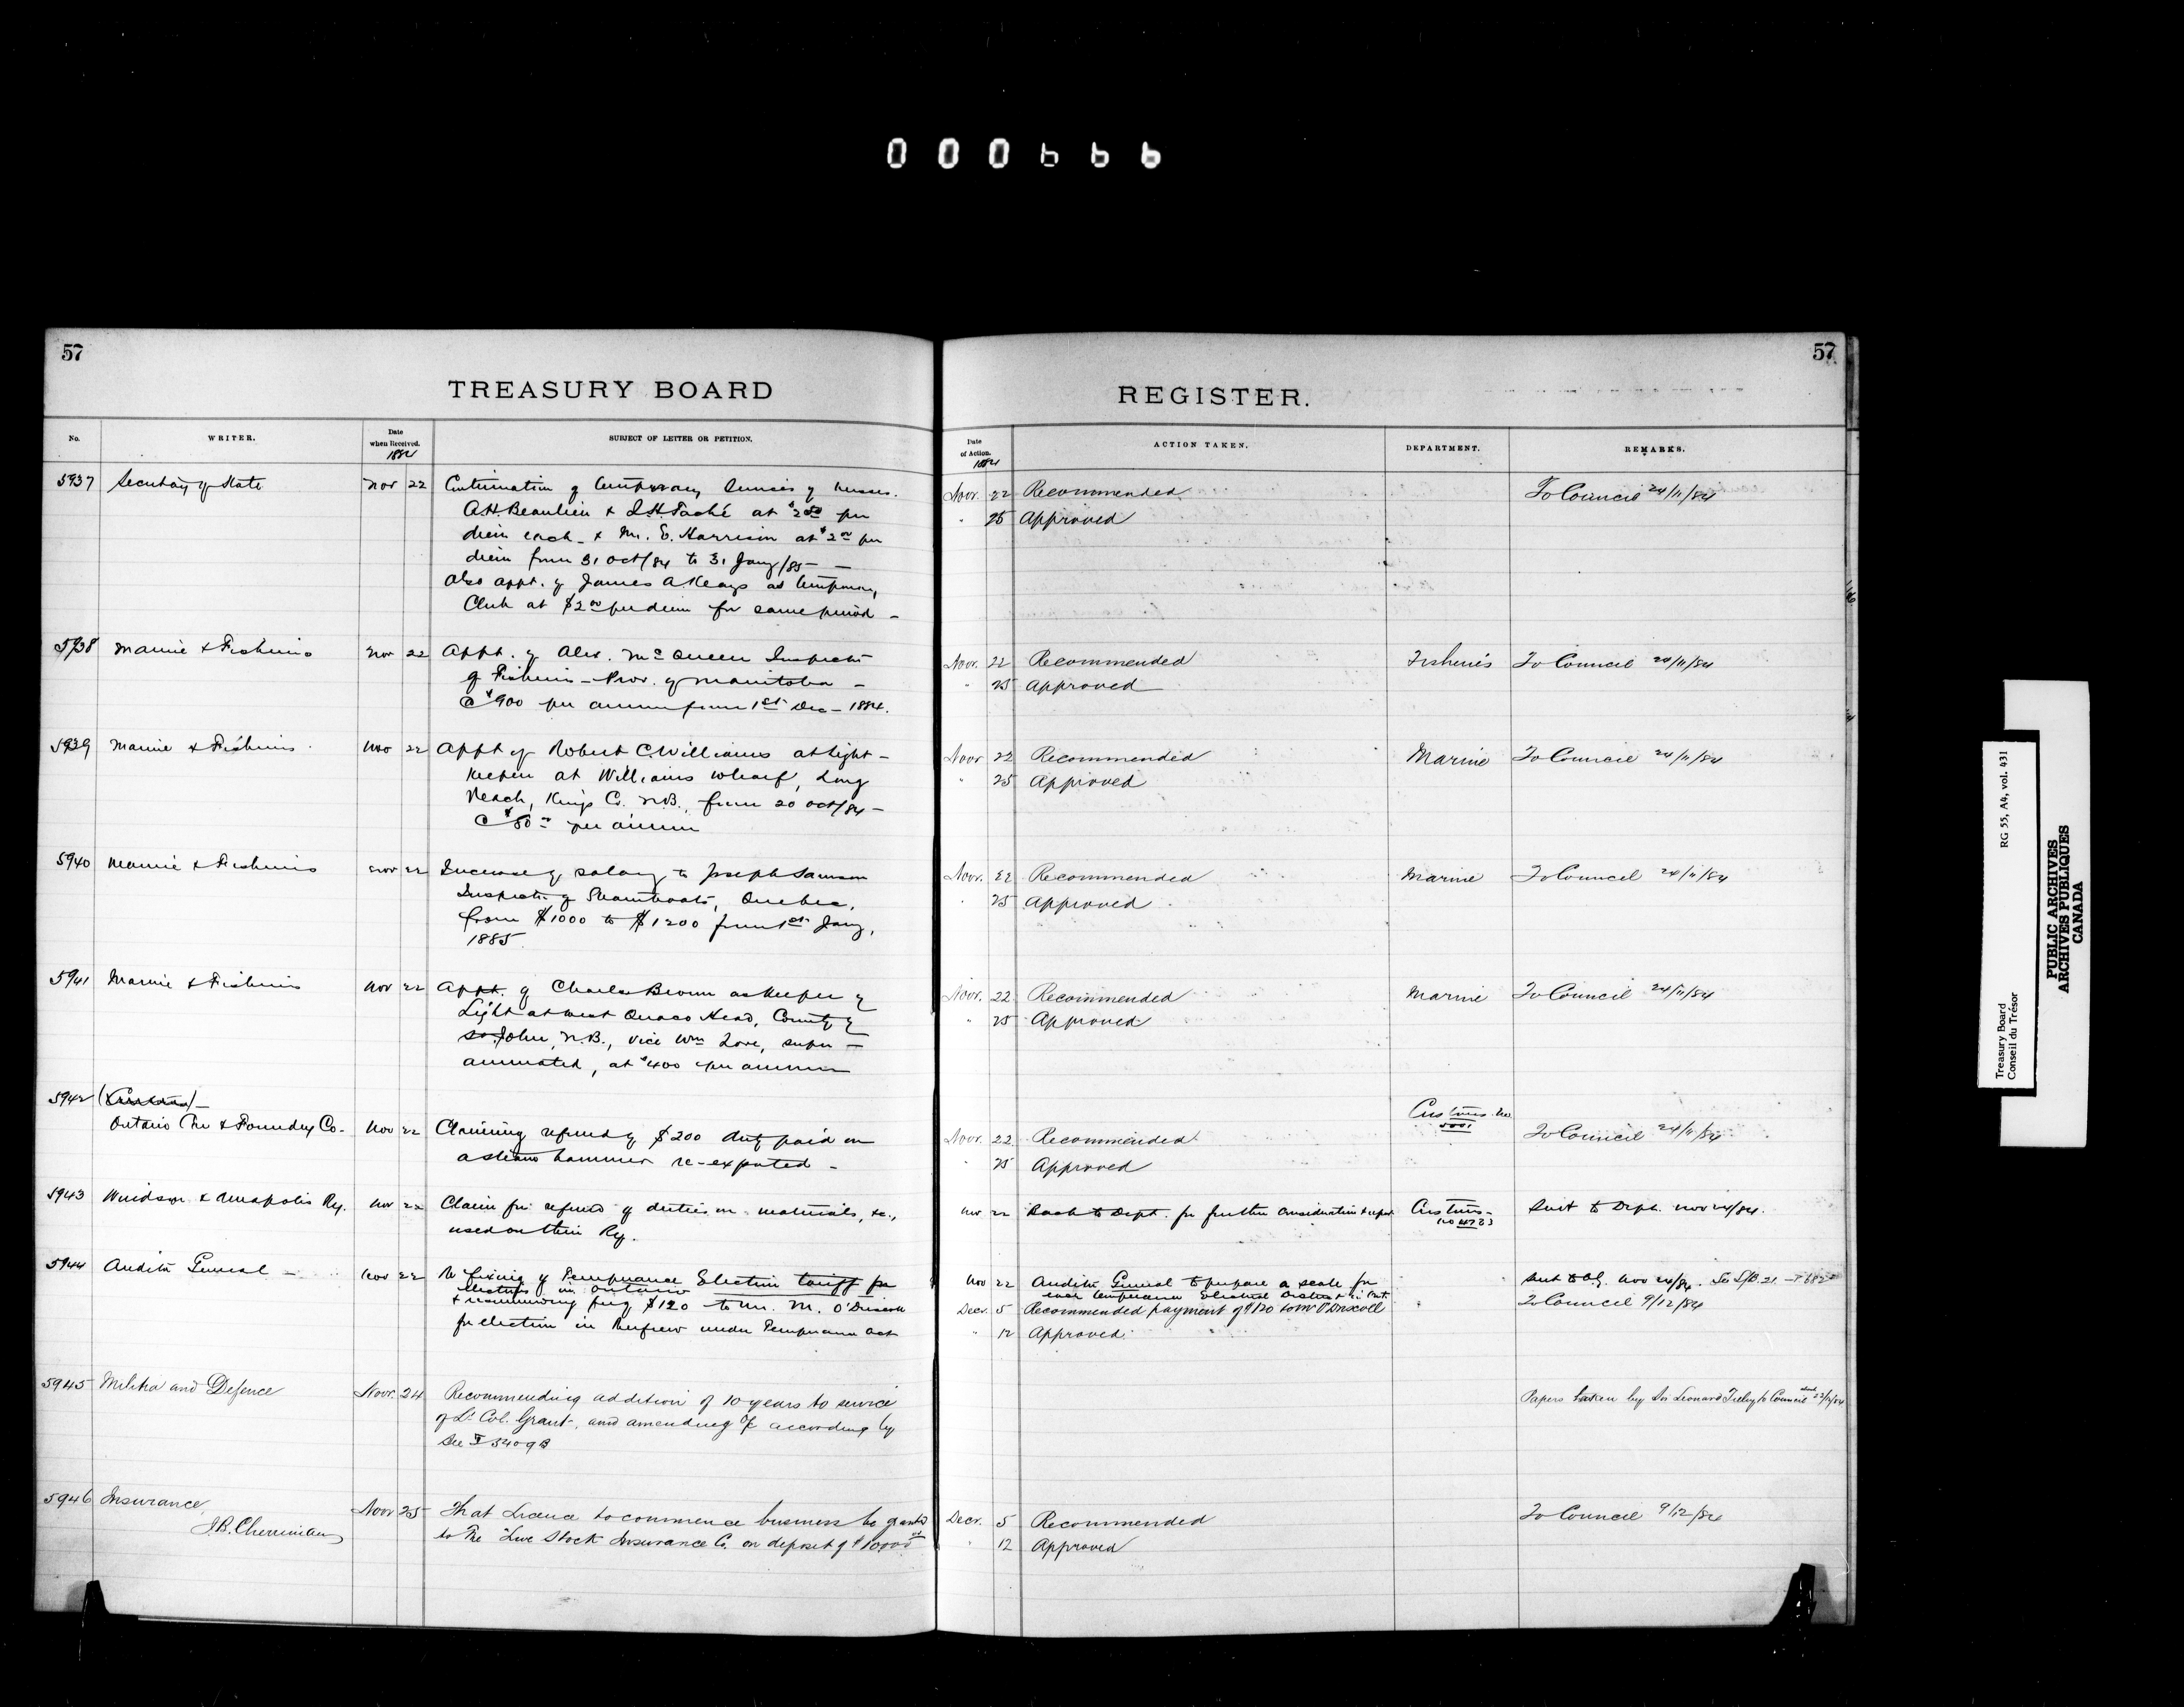 000666
57
57
TREASURY BOARD
REGISTER.
No.
WRITER.
Date
when Received.
1884
SUBJECT OF LETTER OR PETITION.
Date
of Action.
1884
ACTION TAKEN.
DEPARTMENT.
REMARKS.
5937 Secretary of State Nov 22 Continuation of temporary services of Messrs.
A.H. Beaulieu & J.H. Taché at $2.50 per
diem each - & Mr. E. Harrison at $2.00 per
diem from 31 Oct/84 to 31 Jany/85 -
Also appt. of James A Keays as temporary
Clerk at $2.00 per diem for same period -
Nov. 22 Recommended To Council 24/11/84
" 25 Approved
5938 Marine & Fisheries Nov 22 Appt. of Alex. McQueen Inspector
of Fisheries - Prov. of Manitoba -
@ $900 per annum from 1st Dec - 1884.
Nov. 22 Recommended Fisheries To Council 24/11/84
" 25 Approved
5939 Marine & Fisheries Nov 22 Appt of Robert C. Williams at light-
keeper at Williams Wharf, Long
Reach, Kings Co. N.B., from 20 Oct/84 -
@ $80 per annum
Nov 22 Recommended Marine To Council 24/11/84
" 25 Approved
5940 Marine & Fisheries Nov 22 Increase of salary to Joseph Samson
Inspector of Steamboats, Quebec,
from $1000 to $1200 from 1st Jany,
1885
Nov. 22 Recommended Marine To Council 24/11/84
" 25 Approved
5941 Marine & Fisheries Nov 22 Appt. of Charles Brown as keeper of
Light at West Quaco Head, County of
St. John, N.B., vice Wm Love, super-
annuated, at $400 per annum
Nov. 22 Recommended Marine To Council 24/11/84
" 25 Approved
5942 (Customs) -
Ontario Car & Foundry Co. Nov 22 Claiming refund of $200 duty paid on
a steam hammer re-exported -
Customs No
Nov. 22 Recommended To Council 24/11/84
" 25 Approved
5943 Windsor & Annapolis Ry. Nov 22 Claim for refund of duties on materials, &c.,
used on their Ry.
Nov 22 Back to Dept. for further consideration & report Customs - Sent to Dept. Nov 24/84.
No 4723
5944 Auditor General - Nov 22 Re fixing of Temperance Election tariff for
elections in Ontario
& recommending pay $120 to Mr. M. O'Driscoll
for election in Renfrew under Temperance Act
Nov 22 Auditor General to prepare a scale for
each temperance Electoral District in Ont. Sent to A.G. Nov 24/84.
Decr. 5 Recommended payment of $120 to Mr O'Driscoll To Council 9/12/84
" 12 Approved
5945 Militia and Defence Novr. 24 Recommending addition of 10 years to service
of Lt. Col. Grant, and amending O/C accordingly
See 5409B
Papers taken by Sir Leonard Tilley to Council
5946 Insurance
J.B. Cherriman Novr 25 That Licence to commence business be granted
to The Live Stock Insurance Co. on deposit of $10000
Decr. 5 Recommended To Council 9/12/84
" 12 Approved
Treasury Board
Conseil du Trésor
RG 55, A4, vol. 431
PUBLIC ARCHIVES
ARCHIVES PUBLIQUES
CANADA